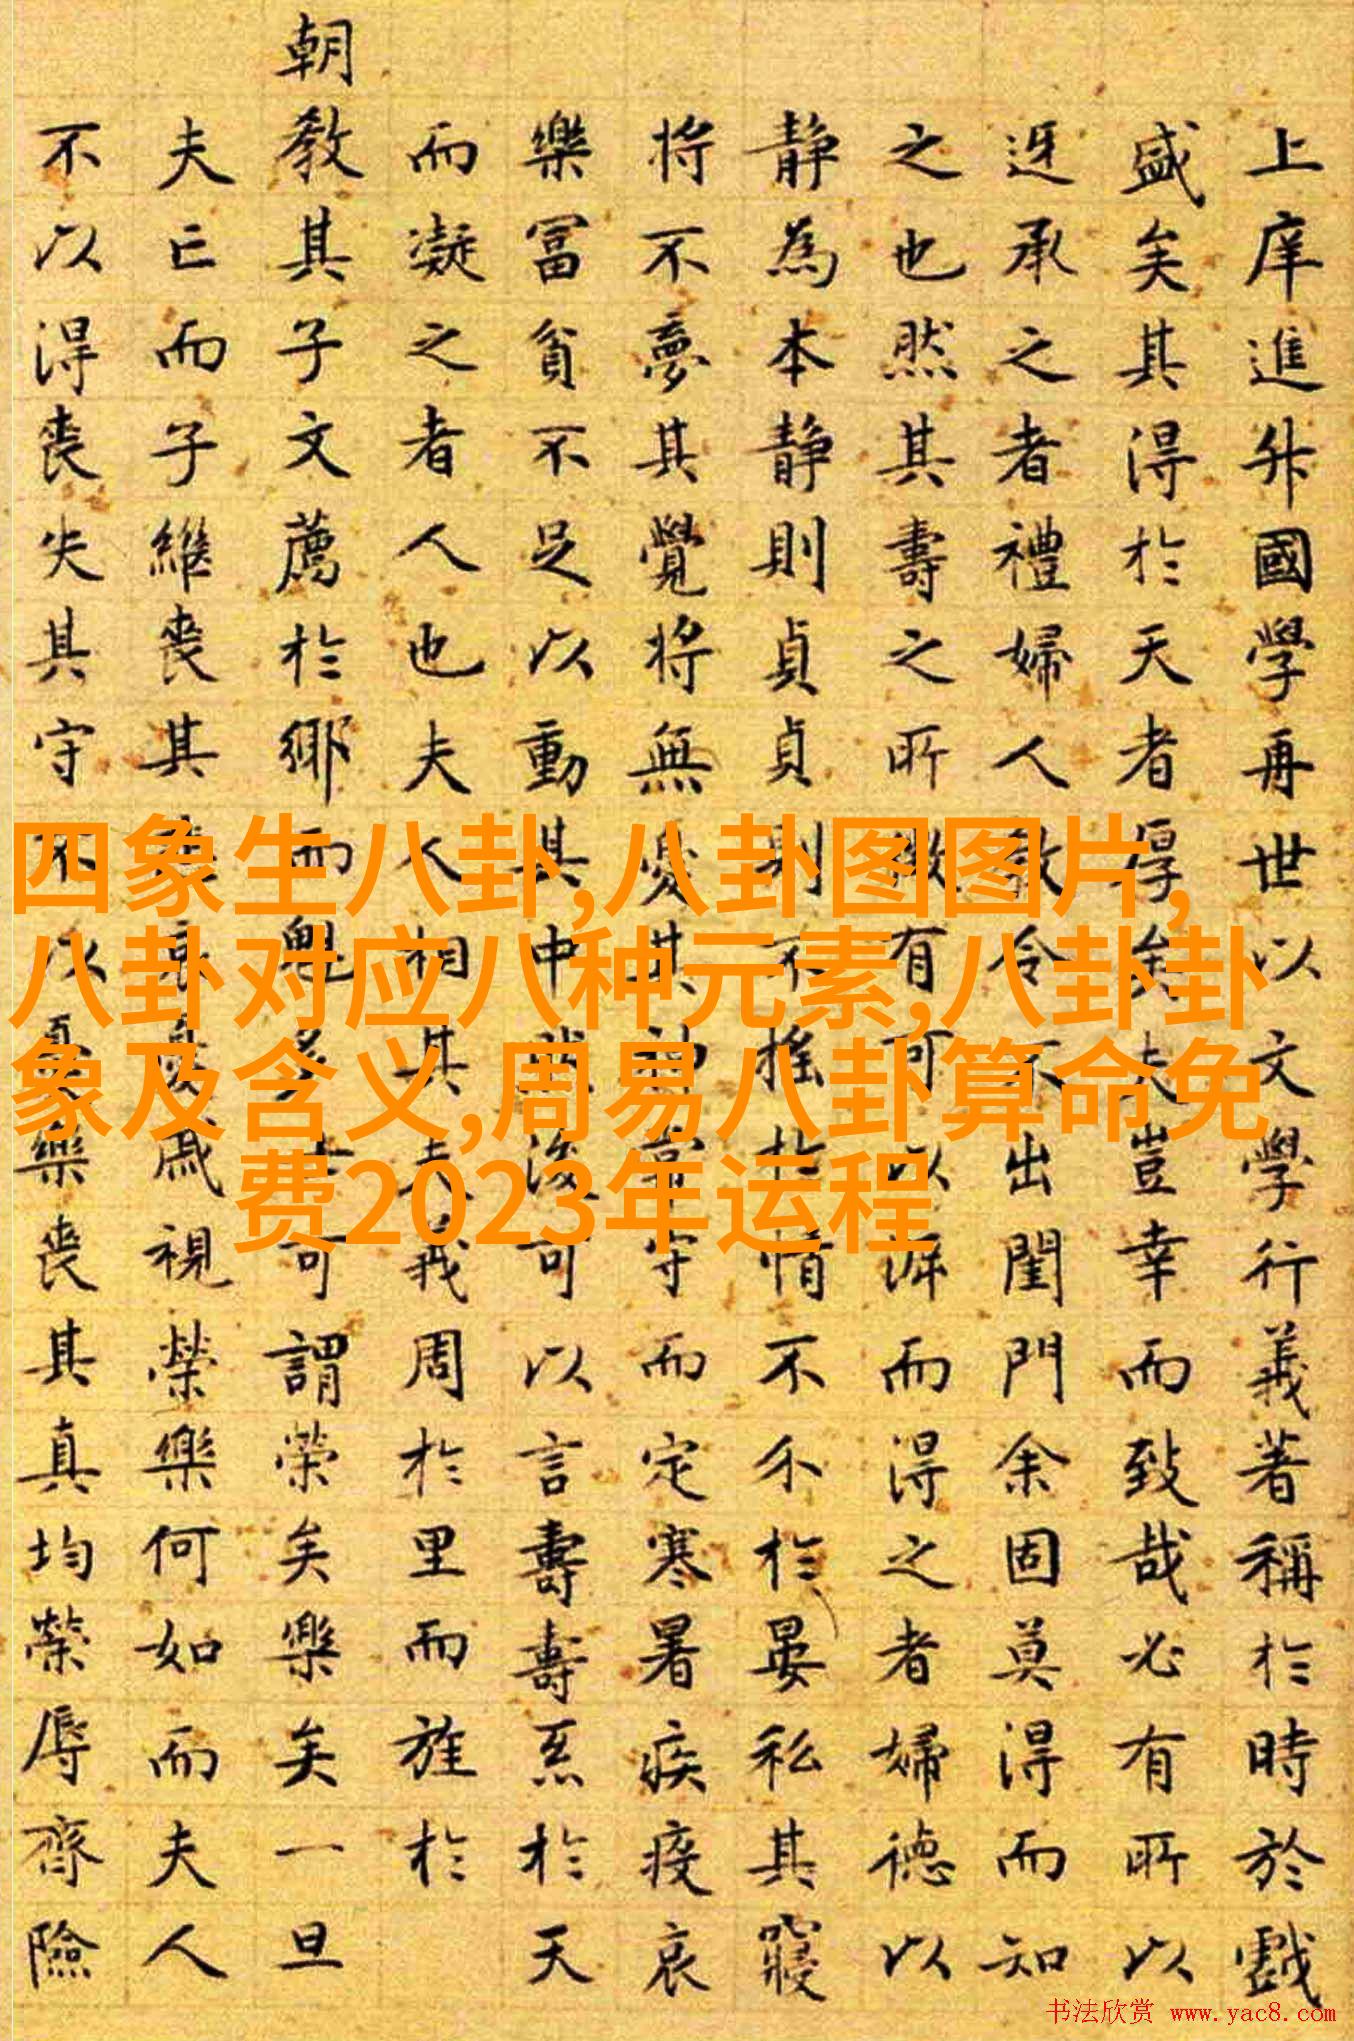 上庠進升國學再世以文學行義著稱於時於戲
盛矣其得於天者厚矣夫豈幸而致哉必有所以
迓承之者禮婦人教令不出閨門余固莫得而知
之也然其壽之所徵有可以而得之者婦德以
静為本静則貞貞則不搖於情不介於晏私其寢
將不夢其覺將無憂其神常守而定寒暑疾疫哀
樂冨貧不足以動其中然後可以言壽壽系於天
而凝之者人也夫人相其夫義周於里而旌於
朝教其子文薦於鄉而魁多士可謂榮矣樂矣一旦
夫亡而子繼喪其哀憂戚視榮樂何如而夫人
不以得喪失其守不以憂樂喪其真均榮辱齊險
四象生八卦,八卦图图片,
八卦对应八种元素,八卦卦
象及含义,周易八卦算命免
费2023年运程
书法欣赏 www.yac8.com